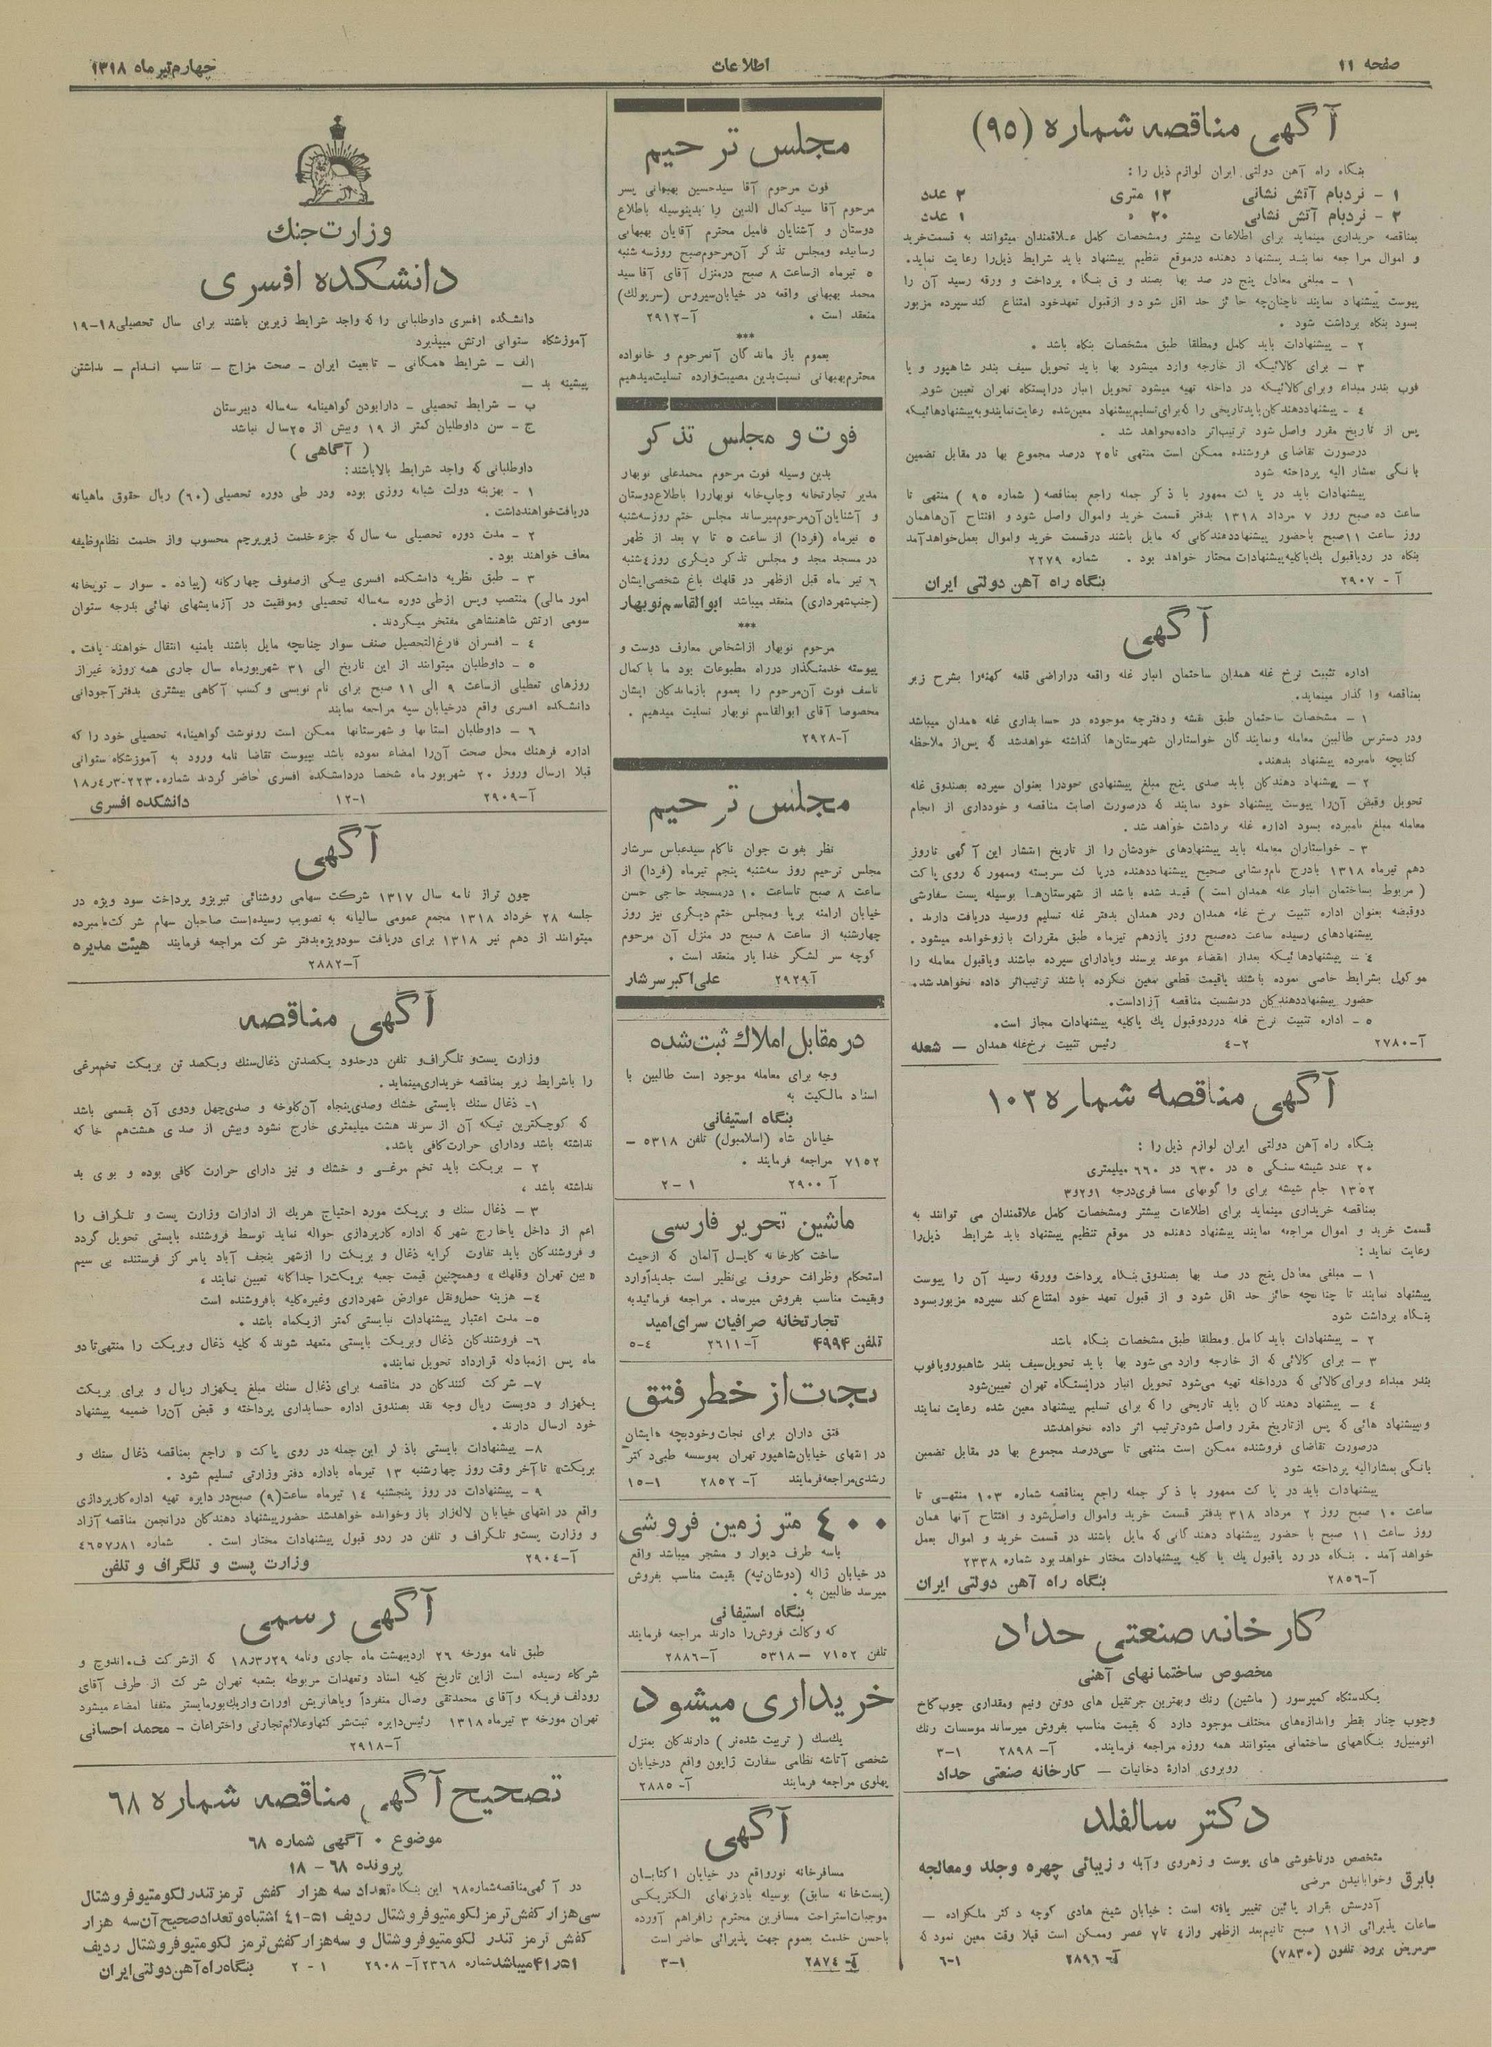 صفحه ۱۱
اطلاعات
چهارم تیر ماه ۱۳۱۸
آگهی مناقصه شماره (۹۵)
بنگاه راه آهن دولتی ایران لوازم ذیل را :
۱ – نردبام آتش نشانی ۱۲ متری ۲ عدد
۲ – نردبام آتش نشانی ۲۰ » ۱ عدد
بمناقصه خریداری مینماید برای اطلاعات بیشتر ومشخصات کامل علاقمندان میتوانند به قسمت خرید
و اموال مراجعه نمایند پیشنهاد دهنده درموقع تنظیم پیشنهاد باید شرایط ذیل را رعایت نماید.
۱ – مبلغی معادل پنج در صد بها بصندوق بنگاه پرداخت و ورقه رسید آن را
پیوست پیشنهاد نمایند تاچنانچه حائز حد اقل شود و ازقبول تعهدخود امتناع کند سپرده مزبور
بسود بنگاه برداشت شود .
۲ – پیشنهادات باید کامل ومطلقا طبق مشخصات بنگاه باشد .
۳ – برای کالائیکه از خارجه وارد میشود بها باید تحویل سیف بندر شاهپور و یا
فوب بندر مبداء وبرای کالائیکه در داخله تهیه میشود تحویل انبار درایستگاه تهران تعیین شود.
۴ – پیشنهاددهندکان بایدتاریخی را که برای تسلیم پیشنهاد معین شده رعایت نمایندوبه پیشنهادهائیکه
پس از تاریخ مقرر واصل شود ترتیب اثر داده نخواهد شد .
درصورت تقاضای فروشنده ممکن است منتهی تا۲۵ درصد مجموع بها در مقابل تضمین
بانکی بمشار الیه پرداخته شود
پیشنهادات باید در پاکت ممهور با ذکر جمله راجع بمناقصه ( شماره ۹۵ ) منتهی تا
ساعت ده صبح روز ۷ مرداد ۱۳۱۸ بدفتر قسمت خرید واموال واصل شود و افتتاح آن ها همان
روز ساعت ۱۱ صبح باحضور پیشنهاددهندکانی که مایل باشند درقسمت خرید و اموال بعمل خواهد آمد
بنگاه در ردیاقبول یك یا کلیه پیشنهادات مختار خواهد بود . شماره ۲۲۷۹
آ – ۲۹۰۷ بنگاه راه آهن دولتی ایران
آگهی
اداره تثبیت نرخ غله همدان ساختمان انبار غله واقعه دراراضی قلعه کهنه را بشرح زیر
بمناقصه واگذار مینماید.
۱ – مشخصات ساختمان طبق نقشه و دفترچه موجوده در حسابداری غله همدان میباشد
ودر دسترس طالبین معامله ونمایندگان خواستاران شهرستان ها گذاشته خواهد شد که پس از ملاحظه
کتابچه نامبرده پیشنهاد بدهند.
۲ – پیشنهاد دهندکان باید صدی پنج مبلغ پیشنهادی خودرا بعنوان سپرده بصندوق غله
تحویل وقبض آن را پیوست پیشنهاد خود نمایند که درصورت اصابت مناقصه و خودداری از انجام
معامله مبلغ نامبرده بسود اداره غله برداشت خواهد شد .
۳ – خواستاران معامله باید پیشنهادهای خودشان را از تاریخ انتشار این آگهی تاروز
دهم تیرماه ۱۳۱۸ بادرج نام ونشانی صحیح پیشنهاددهنده درپاکت سربسته وممهور که روی پاکت
( مربوط بساختمان انبار غله همدان است ) قید شده باشد از شهرستان ها بوسیله پست سفارشی
دوقبضه بعنوان اداره تثبیت نرخ غله همدان ودر همدان بدفتر غله تسلیم ورسید دریافت دارند .
پیشنهادهای رسیده ساعت ده صبح روز یازدهم تیرماه طبق مقررات باز و خوانده میشود .
۴ – پیشنهادهائیکه بعداز انقضاء موعد برسند ویادارای سپرده نباشند ویاقبول معامله را
موکول بشرایط خاصی نموده باشند یاقیمت قطعی معین نکرده باشند ترتیب اثر داده نخواهد شد.
حضور پیشنهاددهندکان درنشست مناقصه آزاداست.
۵ – اداره تثبیت نرخ غله درردوقبول یك یاکلیه پیشنهادات مجاز است.
آ–۲۷۸۰ ۲–۴ رئیس تثبیت نرخ غله همدان – شعله
آگهی مناقصه شماره ۱۰۳
بنگاه راه آهن دولتی ایران لوازم ذیل را :
۲۰ عدد شیشه سنگی ۵ در ۶۳۰ در ۶۶۰ میلیمتری
۱۳۵۲ جام شیشه برای واگونهای مسافری درجه ۱و۲و۳
بمناقصه خریداری مینماید برای اطلاعات بیشتر ومشخصات کامل علاقمندان می توانند به
قسمت خرید و اموال مراجعه نمایند پیشنهاد دهنده در موقع تنظیم پیشنهاد باید شرایط ذیل را
رعایت نماید :
۱ – مبلغی معادل پنج در صد بها بصندوق بنگاه پرداخت وورقه رسید آن را پیوست
پیشنهاد نمایند تا چنانچه حائز حد اقل شود و از قبول تعهد خود امتناع کند سپرده مزبور بسود
بنگاه برداشت شود
۲ – پیشنهادات باید کامل ومطلقا طبق مشخصات بنگاه باشد
۳ – برای کالائی که از خارجه وارد می شود بها باید تحویل سیف بندر شاهپور ویافوب
بندر مبداء وبرای کالائی که درداخله تهیه می شود تحویل انبار درایستگاه تهران تعیین شود
۴ – پیشنهاد دهندکان باید تاریخی را که برای تسلیم پیشنهاد معین شده رعایت نمایند
وپیشنهاد هائی که پس ازتاریخ مقرر واصل شود ترتیب اثر داده نخواهد شد
درصورت تقاضای فروشنده ممکن است منتهی تا سی درصد مجموع بها در مقابل تضمین
بانکی بمشارالیه پرداخته شود
پیشنهادات باید در پاکت ممهور با ذکر جمله راجع بمناقصه شماره ۱۰۳ منتهی تا
ساعت ۱۰ صبح روز ۲ مرداد ۳۱۸ بدفتر قسمت خرید واموال واصل شود و افتتاح آنها همان
روز ساعت ۱۱ صبح با حضور پیشنهاد دهندگانی که مایل باشند در قسمت خرید و اموال بعمل
خواهد آمد . بنگاه در رد یاقبول یك یا کلیه پیشنهادات مختار خواهد بود شماره ۲۳۳۸
آ–۲۸۵۶ بنگاه راه آهن دولتی ایران
کارخانه صنعتی حداد
مخصوص ساختمانهای آهنی
یکدستگاه کمپرسور ( ماشین) رنك وبهترین جرثقیل های دوتن ونیم ومقداری چوب کاج
وچوب چنار بقطر واندازه های مختلف موجود دارد که بقیمت مناسب بفروش میرساند موسسات رنك
اتومبیل و بنگاههای ساختمانی میتوانند همه روزه مراجعه فرمایند. آ– ۲۸۹۸ ۱–۳
روبروی ادارهٔ دخانیات – کارخانه صنعتی حداد
دکتر سالفلد
متخصص درناخوشی های پوست و زهروی وآبله و زیبائی چهره وجلد ومعالجه
بابرق وخوابانیدن مرضی
آدرسش بقرار پائین تغییر یافته است : خیابان شیخ هادی کوچه دکتر ملکزاده –
ساعات پذیرائی از۱۱ صبح تانیم بعد ازظهر واز۴ تا۷ عصر وممکن است قبلا وقت معین نمود که
سرمریض برود تلفون (۷۸۳۰) آ– ۲۸۹۶ ۱–۶
مجلس ترحیم
فوت مرحوم آقا سیدحسین بهبهانی پسر
مرحوم آقا سیدکمال الدین را بدینوسیله باطلاع
دوستان و آشنایان فامیل محترم آقایان بهبهانی
رسانیده ومجلس تذکر آن مرحوم صبح روزسه شنبه
۵ تیرماه ازساعت ۸ صبح درمنزل آقای آقاسید
محمد بهبهانی واقعه در خیابان سیروس (سرپولك)
منعقد است . آ–۲۹۱۲
***
بعموم بازماندگان آنمرحوم و خانواده
محترم بهبهانی نسبت بدین مصیبت وارده تسلیت میدهیم
فوت و مجلس تذکر
بدین وسیله فوت مرحوم محمدعلی نوبهار
مدیر تجارتخانه و چاپ خانه نوبهاررا باطلاع دوستان
و آشنایان آن مرحوم میرساند مجلس ختم روزسه شنبه
۵ تیرماه (فردا) از ساعت ۵ تا ۷ بعد از ظهر
در مسجد مجد و مجلس تذکر دیگری روز ۴شنبه
۶ تیر ماه قبل ازظهر در قلهك باغ شخصی ایشان
(جنب شهرداری) منعقد میباشد ابوالقاسم نوبهار
***
مرحوم نوبهار ازاشخاص معارف دوست و
پیوسته خدمتگذار درراه مطبوعات بود ما با کمال
تاسف فوت آن مرحوم را بعموم بازماندکان ایشان
مخصوصا آقای ابوالقاسم نوبهار تسلیت میدهیم .
آ–۲۹۲۸
مجلس ترحیم
نظر بفوت جوان ناکام سیدعباس سرشار
مجلس ترحیم روز سه شنبه پنجم تیرماه (فردا) از
ساعت ۸ صبح تاساعت ۱۰ درمسجد حاجی حسن
خیابان ارامنه برپا ومجلس ختم دیگری نیز روز
چهارشنبه از ساعت ۸ صبح در منزل آن مرحوم
کوچه سر لشگر خدایار منعقد است .
آ۲۹۲۹ علی اکبر سرشار
در مقابل املاك ثبت شده
وجه برای معامله موجود است طالبین با
اسناد مالکیت به
بنگاه استیفانی
خیابان شاه (اسلامبول) تلفن ۵۳۱۸ –
۷۱۵۲ مراجعه فرمایند .
آ ۲۹۰۰ ۱ – ۲
ماشین تحریر فارسی
ساخت کارخانه کاپسل آلمان که ازحیث
استحکام وظرافت حروف بی نظیر است جدیداًوارد
وبقیمت مناسب بفروش میرسد . مراجعه فرمائید به
تجارتخانه صرافیان سرای امید
تلفن ۴۹۹۴ آ–۲۶۱۱ ۴–۵
نجات از خطر فتق
فتق داران برای نجات وخود بچه هایشان
در انتهای خیابان شاهپور تهران بموسسه طبی دکتر
رشدی مراجعه فرمایند آ– ۲۸۵۲ ۱–۱۵
۴۰۰ متر زمین فروشی
باسه طرف دیوار و مشجر میباشد واقع
در خیابان ژاله (دوشان تپه) بقیمت مناسب بفروش
میرسد طالبین به .
بنگاه استیفانی
که وکالت فروش را دارند مراجعه فرمایند
تلفن ۷۱۵۲ – ۵۳۱۸ آ–۲۸۸۶
خریداری میشود
یك سك ( تربیت شده نر ) دارندکان بمنزل
شخصی آتاشه نظامی سفارت ژاپون واقع درخیابان
پهلوی مراجعه فرمایند آ– ۲۸۸۵
آگهی
مسافرخانه نور واقع در خیابان اکباتان
(پست خانه سابق) بوسیله بادبزنهای الکتریکی
موجبات استراحت مسافرین محترم رافراهم آورده
باحسن خدمت بعموم جهت پذیرائی حاضر است
آ– ۲۸۷۴ ۱–۳
وزارت جنك
دانشکده افسری
دانشکده افسری داوطلبانی را که واجد شرایط زیرین باشند برای سال تحصیلی ۱۸–۱۹
آموزشگاه ستوانی ارتش میپذیرد
الف – شرایط همگانی – تابعیت ایران – صحت مزاج – تناسب اندام – نداشتن
پیشینه بد –
ب – شرایط تحصیلی – دارابودن گواهینامه سه ساله دبیرستان
ج – سن داوطلبان کمتر از ۱۹ وبیش از ۲۵ سال نباشد
( آگاهی )
داوطلبانی که واجد شرایط بالاباشند :
۱ – بهزینه دولت شبانه روزی بوده ودر طی دوره تحصیلی (۶۰) ریال حقوق ماهیانه
دریافت خواهند داشت .
۲ – مدت دوره تحصیلی سه سال که جزء خدمت زیرپرچم محسوب واز خدمت نظام وظیفه
معاف خواهند بود .
۳ – طبق نظریه دانشکده افسری بیکی ازصفوف چهارکانه (پیاده – سوار – توپخانه
امور مالی) منتصب وپس ازطی دوره سه ساله تحصیلی وموفقیت در آزمایشهای نهائی بدرجه ستوان
سومی ارتش شاهنشاهی مفتخر میگردند .
۴ – افسران فارغ التحصیل صنف سوار چنانچه مایل باشند بامنیه انتقال خواهند یافت .
۵ – داوطلبان میتوانند از این تاریخ الی ۳۱ شهریورماه سال جاری همه روزه غیر از
روزهای تعطیلی ازساعت ۹ الی ۱۱ صبح برای نام نویسی و کسب آگاهی بیشتری بدفتر آجودانی
دانشکده افسری واقع درخیابان سپه مراجعه نمایند
۶ – داوطلبان استانها و شهرستانها ممکن است رونوشت گواهینامه تحصیلی خود را که
اداره فرهنگ محل صحت آن را امضاء نموده باشد بپیوست تقاضا نامه ورود به آموزشگاه ستوانی
قبلا ارسال وروز ۲۰ شهریور ماه شخصا دردانشکده افسری حاضر گردند شماره ۲۲۳۰–۳ر۴ر۱۸
آ–۲۹۰۹ ۱–۱۲ دانشکده افسری
آگهی
چون تراز نامه سال ۱۳۱۷ شرکت سهامی روشنائی تبریزو پرداخت سود ویژه در
جلسه ۲۸ خرداد ۱۳۱۸ مجمع عمومی سالیانه به تصویب رسیده است صاحبان سهام شرکت نامبرده
میتوانند از دهم تیر ۱۳۱۸ برای دریافت سودویژه بدفتر شرکت مراجعه فرمایند هیئت مدیره
آ–۲۸۸۲
آگهی مناقصه
وزارت پست و تلگراف و تلفن درحدود یکصدتن ذغال سنك ویکصد تن بریکت تخم مرغی
را باشرایط زیر بمناقصه خریداری مینماید .
۱– ذغال سنك بایستی خشك وصدی پنجاه آن کلوخه و صدی چهل ودوی آن بقسمی باشد
که کوچکترین تیکه آن از سرند هشت میلیمتری خارج نشود وبیش از صدی هشت هم خاکه
نداشته باشد ودارای حرارت کافی باشد.
۲ – بریکت باید تخم مرغی و خشك و نیز دارای حرارت کافی بوده و بوی بد
نداشته باشد ،
۳ – ذغال سنك و بریکت مورد احتیاج هریك از ادارات وزارت پست و تلگراف را
اعم از داخل یاخارج شهر که اداره کارپردازی حواله نماید توسط فروشنده بایستی تحویل گردد
و فروشندکان باید تفاوت کرایه ذغال و بریکت را ازشهر بنجف آباد یامرکز فرستنده بی سیم
« بین تهران وقلهك » وهمچنین قیمت جعبه بریکت را جداگانه تعیین نمایند ،
۴– هزینه حمل ونقل عوارض شهرداری وغیره کلیه بافروشنده است
۵– مدت اعتبار پیشنهادات نبایستی کمتر ازیکماه باشد .
۶– فروشندکان ذغال وبریکت بایستی متعهد شوند که کلیه ذغال وبریکت را منتهی تا دو
ماه پس ازمبادله قرارداد تحویل نمایند.
۷– شرکت کنندکان در مناقصه برای ذغال سنك مبلغ یکهزار ریال و برای بریکت
یکهزار و دویست ریال وجه نقد بصندوق اداره حسابداری پرداخته و قبض آن را ضمیمه پیشنهاد
خود ارسال دارند .
۸– پیشنهادات بایستی باذکر این جمله در روی پاکت « راجع بمناقصه ذغال سنك و
بریکت» تا آخر وقت روز چهارشنبه ۱۳ تیرماه باداره دفتر وزارتی تسلیم شود .
۹ – پیشنهادات در روز پنجشنبه ۱۴ تیرماه ساعت (۹) صبح در دایره تهیه اداره کارپردازی
واقع در انتهای خیابان لاله زار باز وخوانده خواهدشد حضور پیشنهاد دهندکان درانجمن مناقصه آزاد
و وزارت پست و تلگراف و تلفن در ردو قبول پیشنهادات مختار است . شماره ۴۶۵۷ر۸۱
آ–۲۹۰۴ وزارت پست و تلگراف و تلفن
آگهی رسمی
طبق نامه مورخه ۲۶ اردیبهشت ماه جاری ونامه ۲۹ر۳ر۱۸ که ازشرکت ف. اندوج و
شرکاء رسیده است ازاین تاریخ کلیه اسناد وتعهدات مربوطه بشعبه تهران شرکت از طرف آقای
رودلف فریکه و آقای محمدتقی وصال منفرداً وباهانریش اورات واریك بورمایستر متفقا امضاء میشود
تهران مورخه ۳ تیرماه ۱۳۱۸ رئیس دایره ثبت شرکتها وعلائم تجارتی واختراعات – محمد احسانی
آ–۲۹۱۸
تصحیح آگهی مناقصه شماره ۶۸
موضوع ۰ آگهی شماره ۶۸
پرونده ۶۸ – ۱۸
در آگهی مناقصه شماره ۶۸ این بنگاه تعداد سه هزار کفش ترمز تندر لکومتیو فروشتال
سی هزار کفش ترمز لکومتیو فروشتال ردیف ۵۱–۴۱ اشتباه و تعداد صحیح آن سه هزار
کفش ترمز تندر لکومتیو فروشتال و سه هزار کفش ترمز لکومتیو فروشتال ردیف
۵۱ر۴۱ میباشد شماره ۲۳۶۸ آ–۲۹۰۸ ۱ – ۲ بنگاه راه آهن دولتی ایران